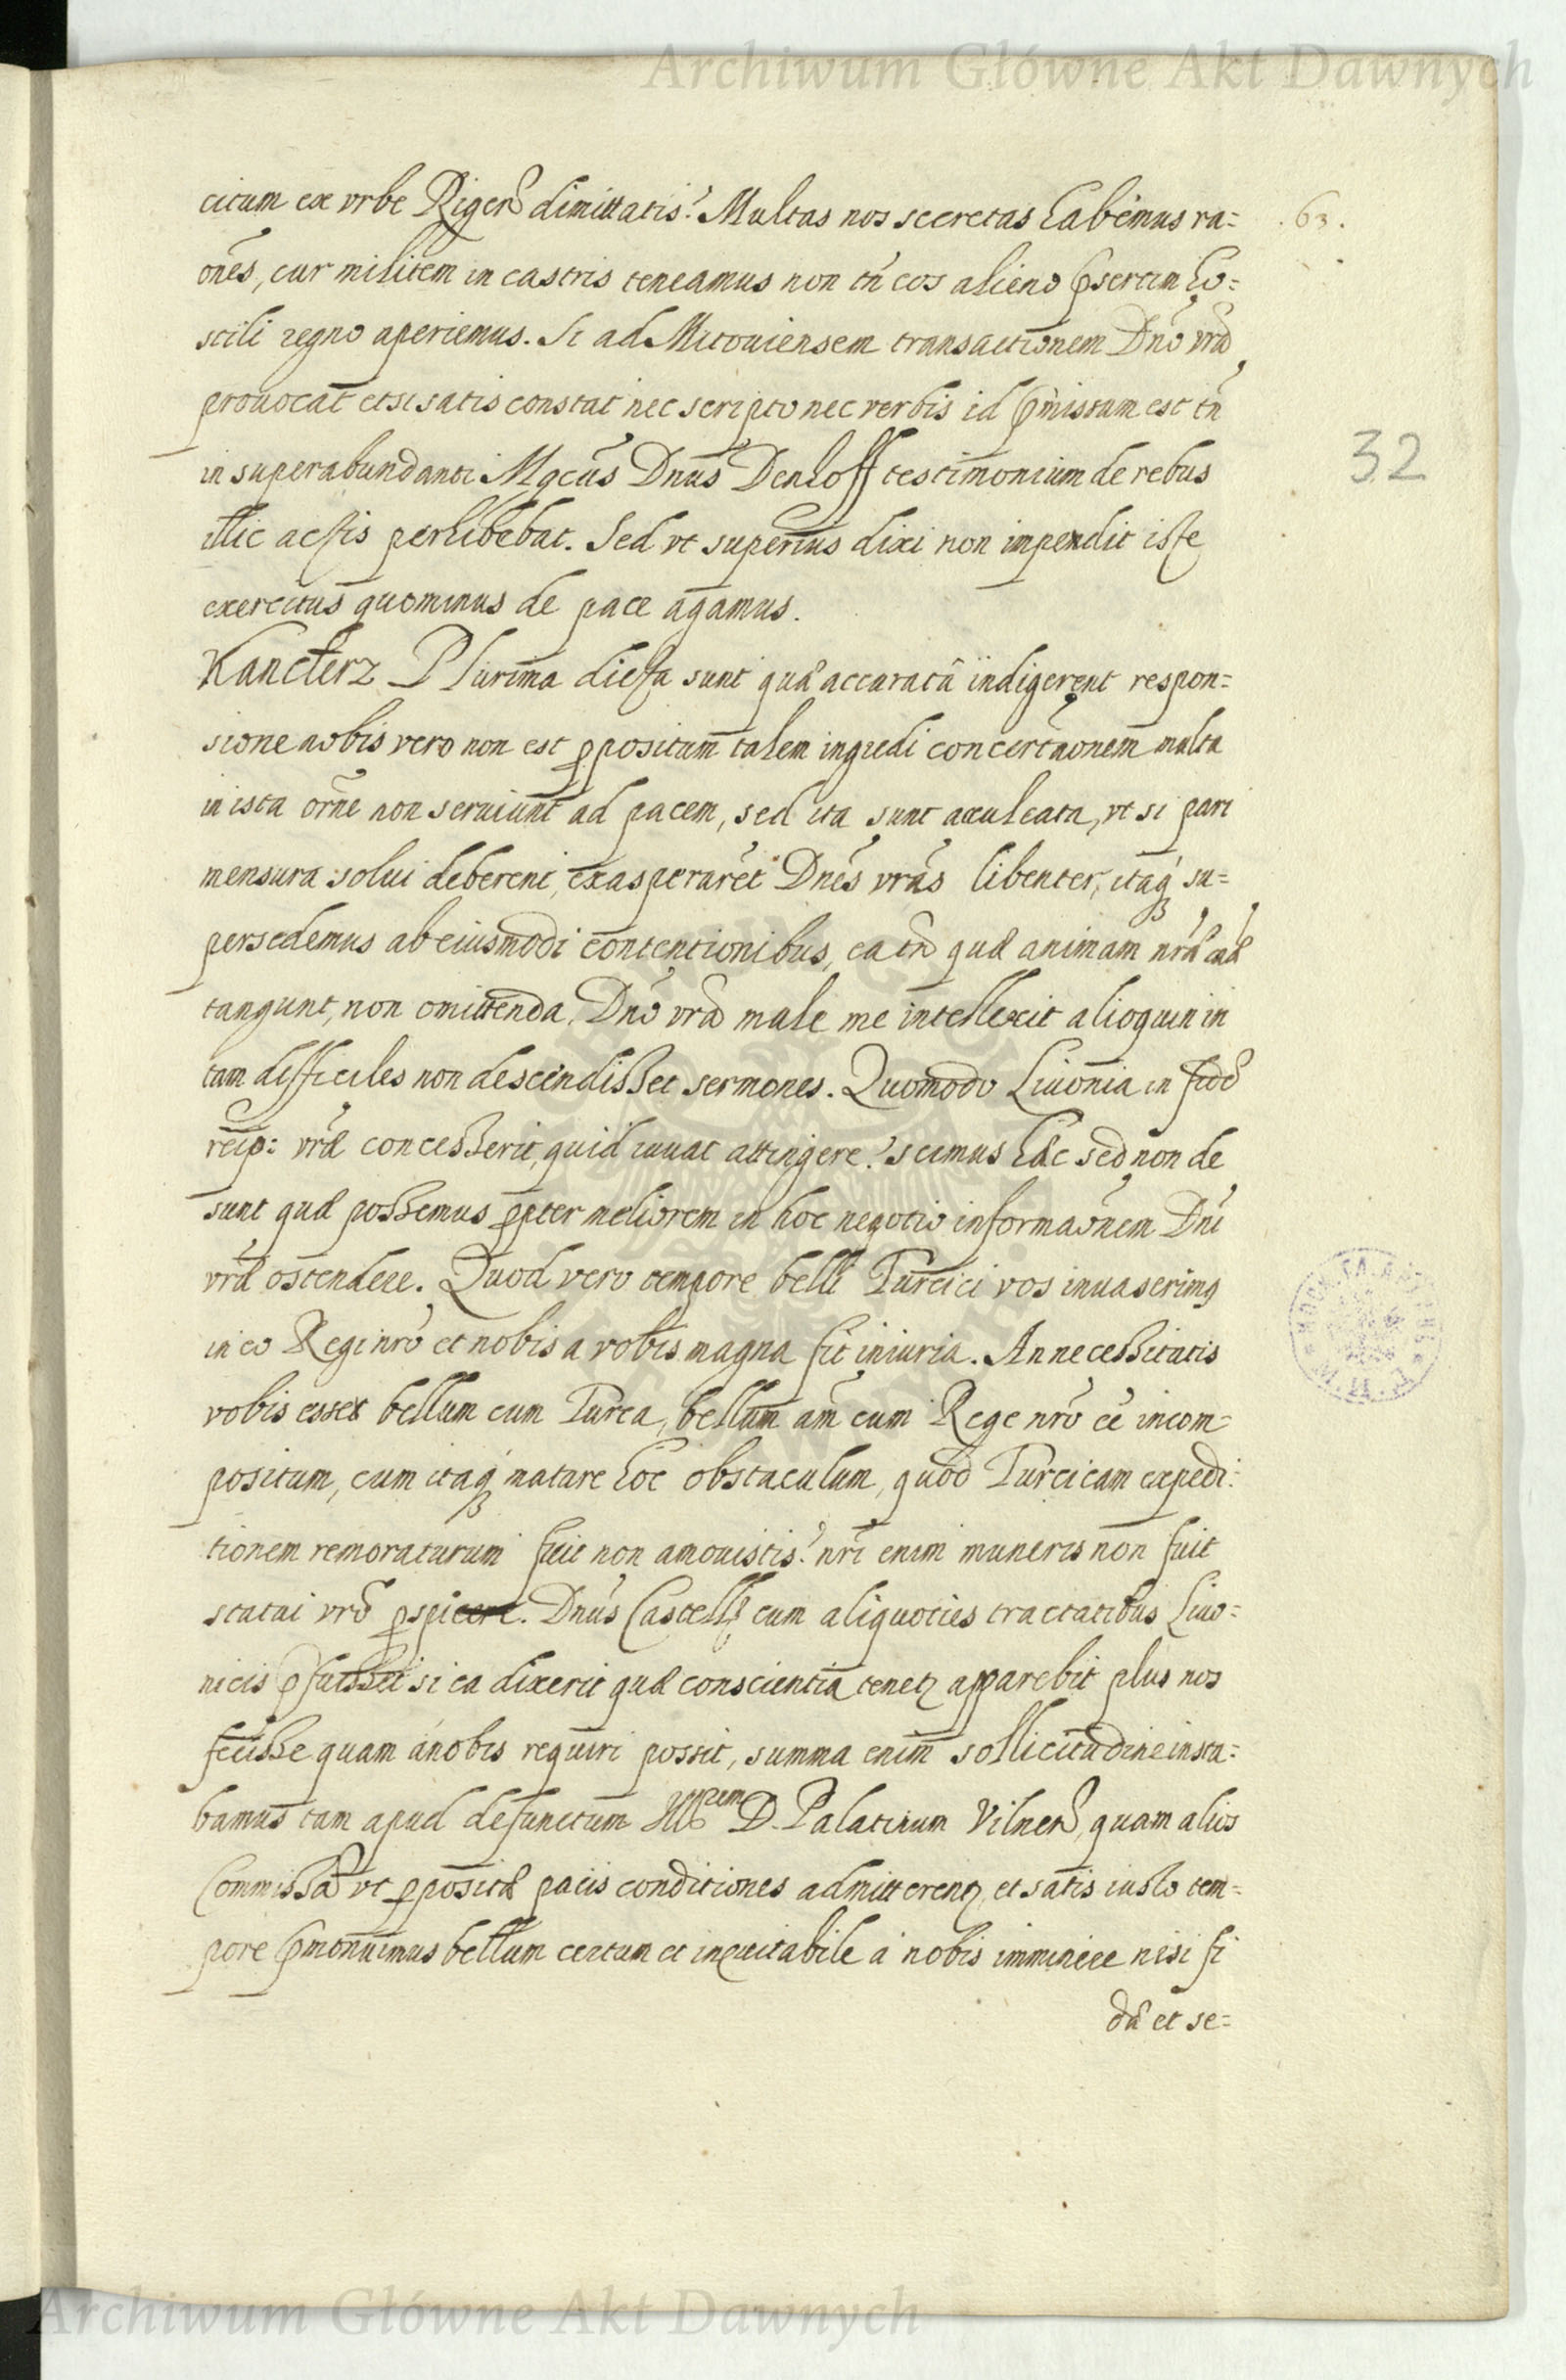 Archiwum Główne Akt Dawnych
citum ex vrbe Rigen̄ dimittatis? Multas nos secretas habemus ra=
.63.
oñes, cur militem in castris teneamus non tñ eos alieno p̄sertim ho=
stili regno aperiemus. Si ad Mitouiensem transactionem Dnō vrā
prouocat etsi satis constat nec scripto nec verbis id p̄missam est tñ
32
in superabundanti Mgcūs Dnūs Denhoff testimonium de rebus
illic actis perhibebat. Sed vt superius dixi non impendit iste
exercitus quominus de pace agamus.
Kanclerz Plurima dicta sunt quæ accuratā indigerent respon=
sione nobis vero non est ꝓpositum talem ingredi concertāonem multa
in ista orñe non seruiunt ad pacem, sed ita sunt aculeata, vt si pari
mensura solui deberent, exasperarēt Dnēs vrās libenter, itaqꝫ su=
persedemus ab eiusmodi contentionibus, ea tñ quæ animam nrā
tangunt, non omittenda. Dnō vrā male me intellexit alioquin in
tam difficiles non descendisset sermones. Quomodo Liuonia in fidē
reip: vræ concesserit, quid iuuat attingere? scimus hæc sed non de
sunt quæ possemus ꝓpter meliorem in hoc negotio informaōnem Dnī
vræ ostendere. Quod vero tempore belli Turcici vos inuaserimꝯ
in eo Regi nrō et nobis a vobis magna fit iniuria. An necessitatis
vobis esset bellum cum Turca, bellum am̄ cum Rege nrō eē incom=
positum, cum itaqꝫ mature hoc obstaculum, quod Turcicam expedi:
tionem remoraturum fuit non amouistis? nrī enim muneris non fuit
statui vrō ꝓspicere. Dnūs Castellꝫ cum aliquoties tractatibus Liuo=
nicis p̄fuisset si ea dixerit quæ conscientia tenetꝫ apparebit plus nos
fecisse quam á nobis requiri possit, summa enim sollicitudine insta=
bamus tam apud defunctum Illrem D. Palatinum Vilnen̄, quam alios
Commissā vt ꝓpositæ pacis conditiones admitterentꝫ, et satis iusto tem=
pore p̄monuimus bellum certum et ineuitabile á nobis imminere nisi fi
dā et se=
Archiwum Główne Akt Dawnych